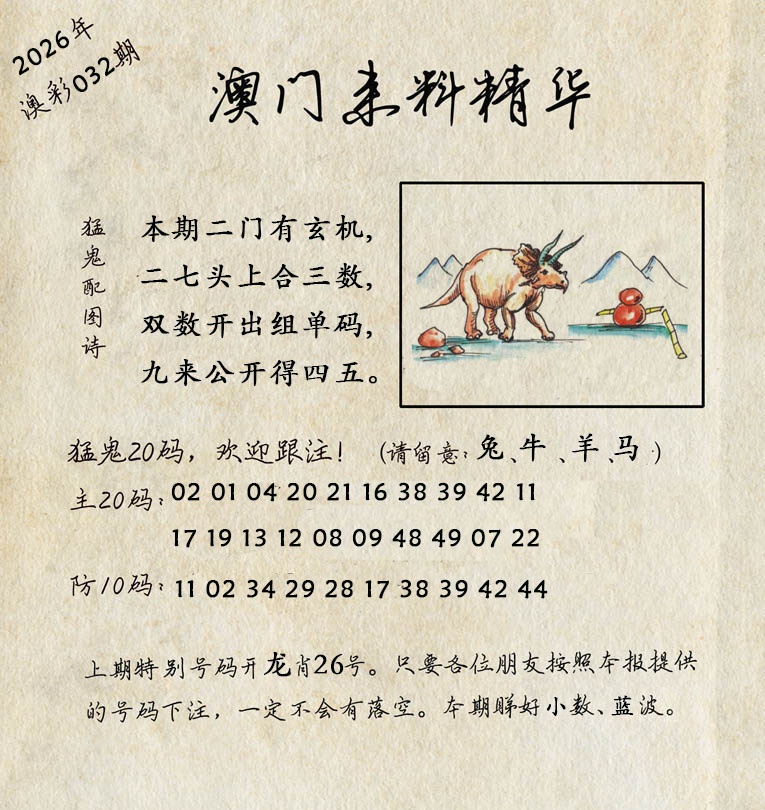 2026年
澳彩032期
澳门来料精华
猛鬼配图诗
本期二门有玄机,
二七头上合三数,
双数开出组单码,
九来公开得四五。
猛鬼20码，欢迎跟注！（请留意：兔、牛、羊、马）
主20码：02 01 04 20 21 16 38 39 42 11
17 19 13 12 08 09 48 49 07 22
防10码：11 02 34 29 28 17 38 39 42 44
上期特别号码开龙肖26号。只要各位朋友按照本报提供
的号码下注，一定不会有落空。本期睇好小数、蓝波。